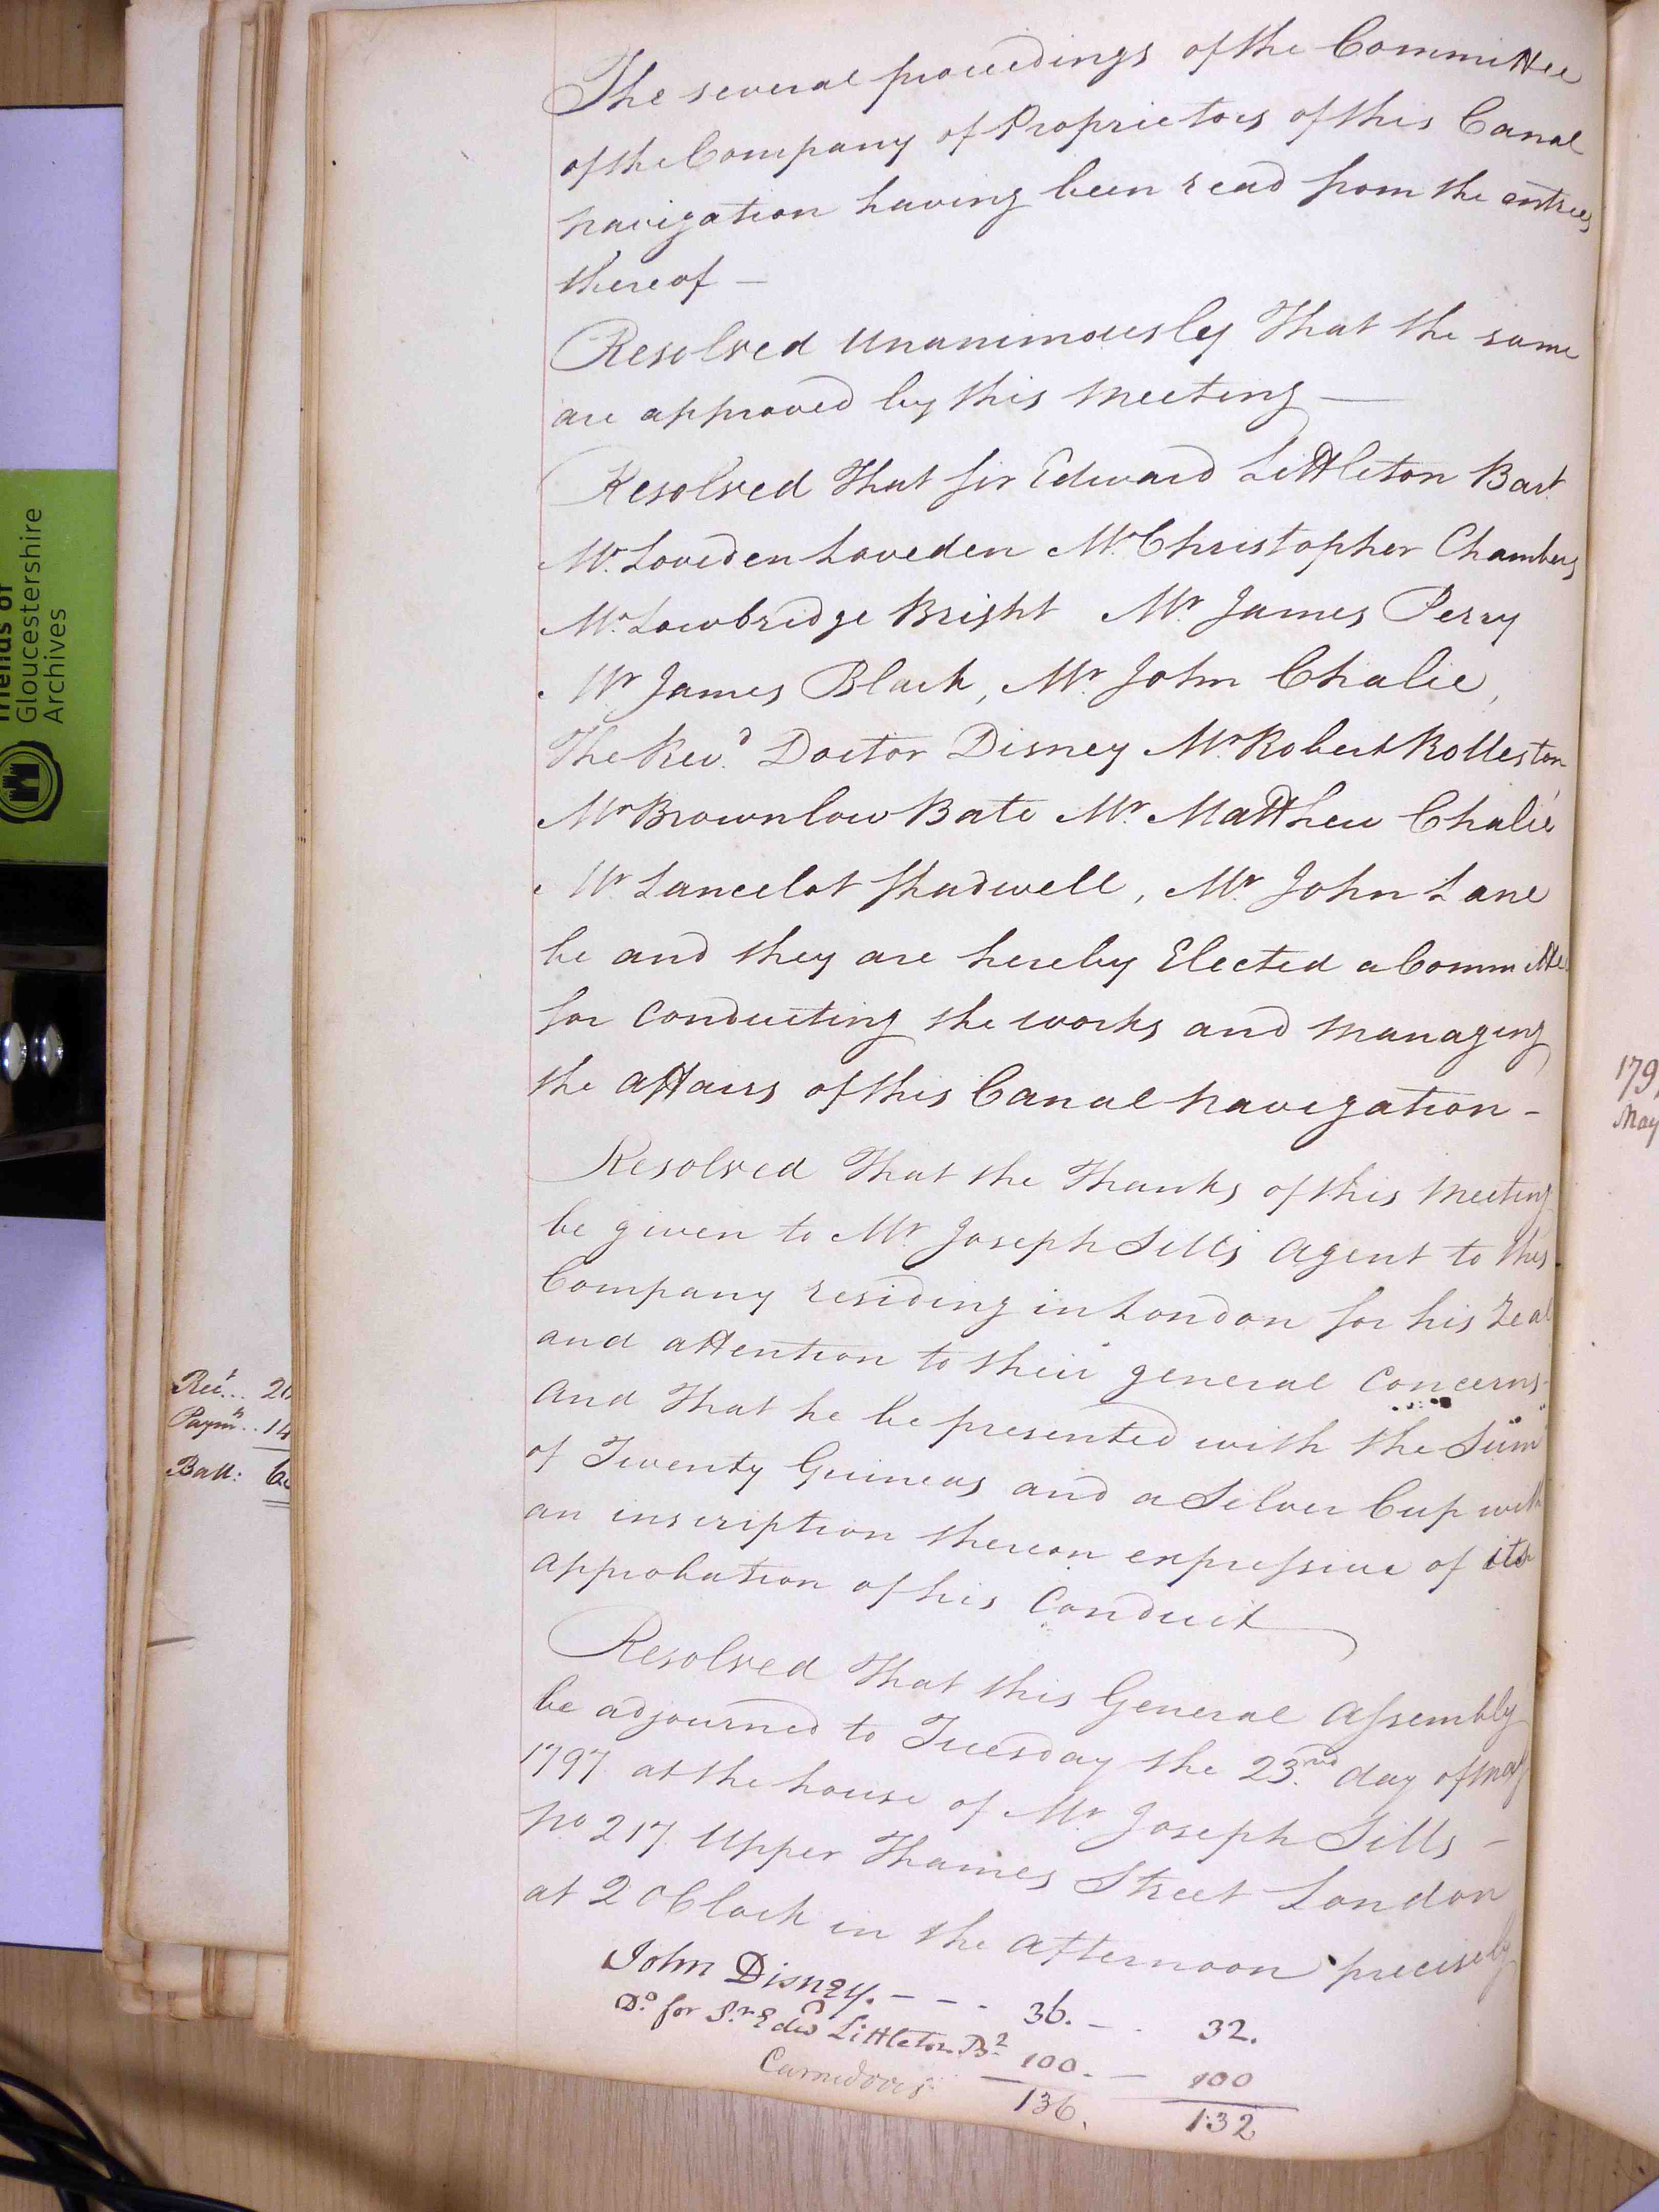 The several proceedings of the Committee
of the Company of Proprietors of this Canal
navigation having been read from the entries
thereof —
Resolved Unanimously That the same
are approved by this Meeting —
Resolved That Sir Edward Littleton Bart
Mr. Loveden Loveden Mr. Christopher Chambers
Mr. Lowbridge Bright Mr. James Perry
Mr James Black, Mr. John Chalie,
The Revd. Doctor Disney Mr. Robert Rolleston
Mr Brownlow Bate Mr. Matthew Chalié
Mr. Lancelot Shadwell, Mr. John Lane
be and they are hereby Elected a Committee
for conducting the works and managing
the affairs of this Canal navigation -
Resolved That the Thanks of this Meeting
be given to Mr. Joseph Sills Agent to this
Company residing in London for his Zeal
and attention to their general Concerns
and That he be presented with the Sum
of Twenty Guineas and a Silver Cup with
an inscription thereon expressive of its
approbation of his Conduct
Resolved That this General Assembly
be adjourned to Tuesday the 23rd. day of May
1797 at the house of Mr Joseph Sills —
No 217 Upper Thames Street London
at 2 oClock in the afternoon precisely
John Disney. - - - 36. - . 32.
Do. for Sr. Edwd Littleton Bt. 100. — 100
Carried over 136. 132
Friends of
Gloucestershire
Archives
Rect... 20
Paymts.. 14
Ball: 6
179
May